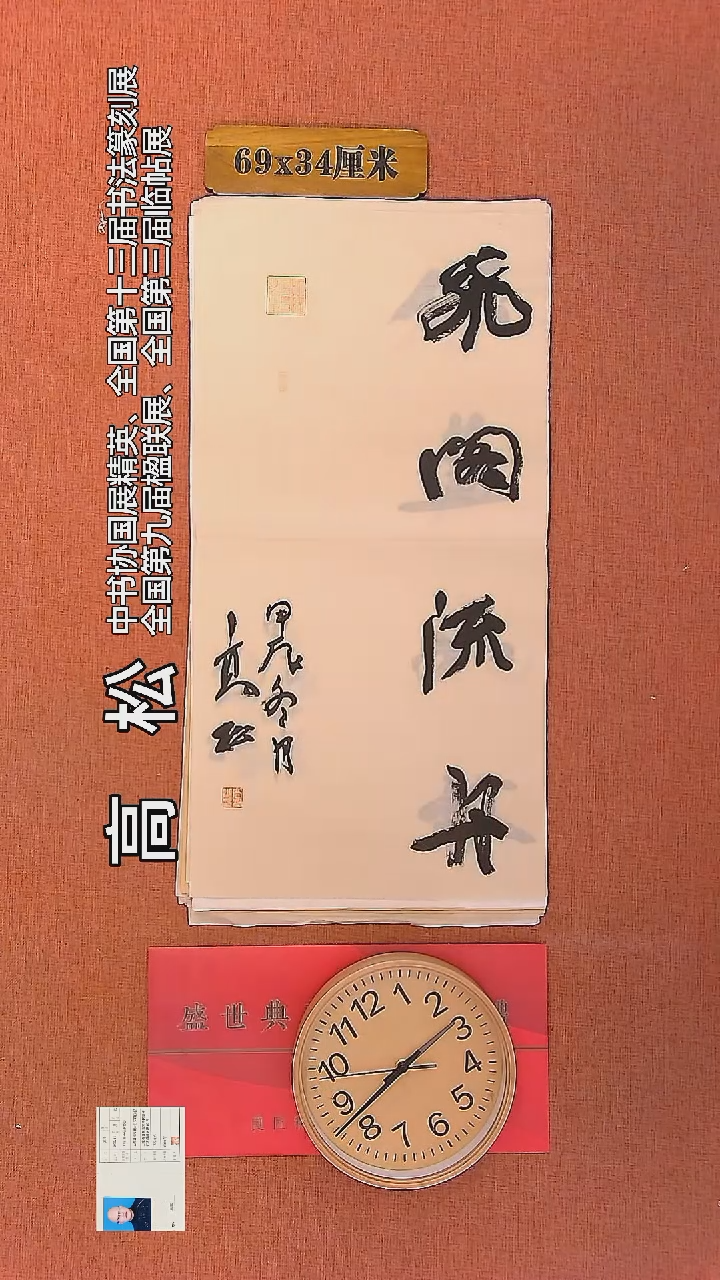 69x34厘米
中书协国展精英、全国第十三届书法篆刻展
全国第九届楹联展、全国第三届临帖展
高 松
飛閣流丹
甲辰冬月
高松
盛世典
12 1 2 3 4 5 6 7 8 9 10 11